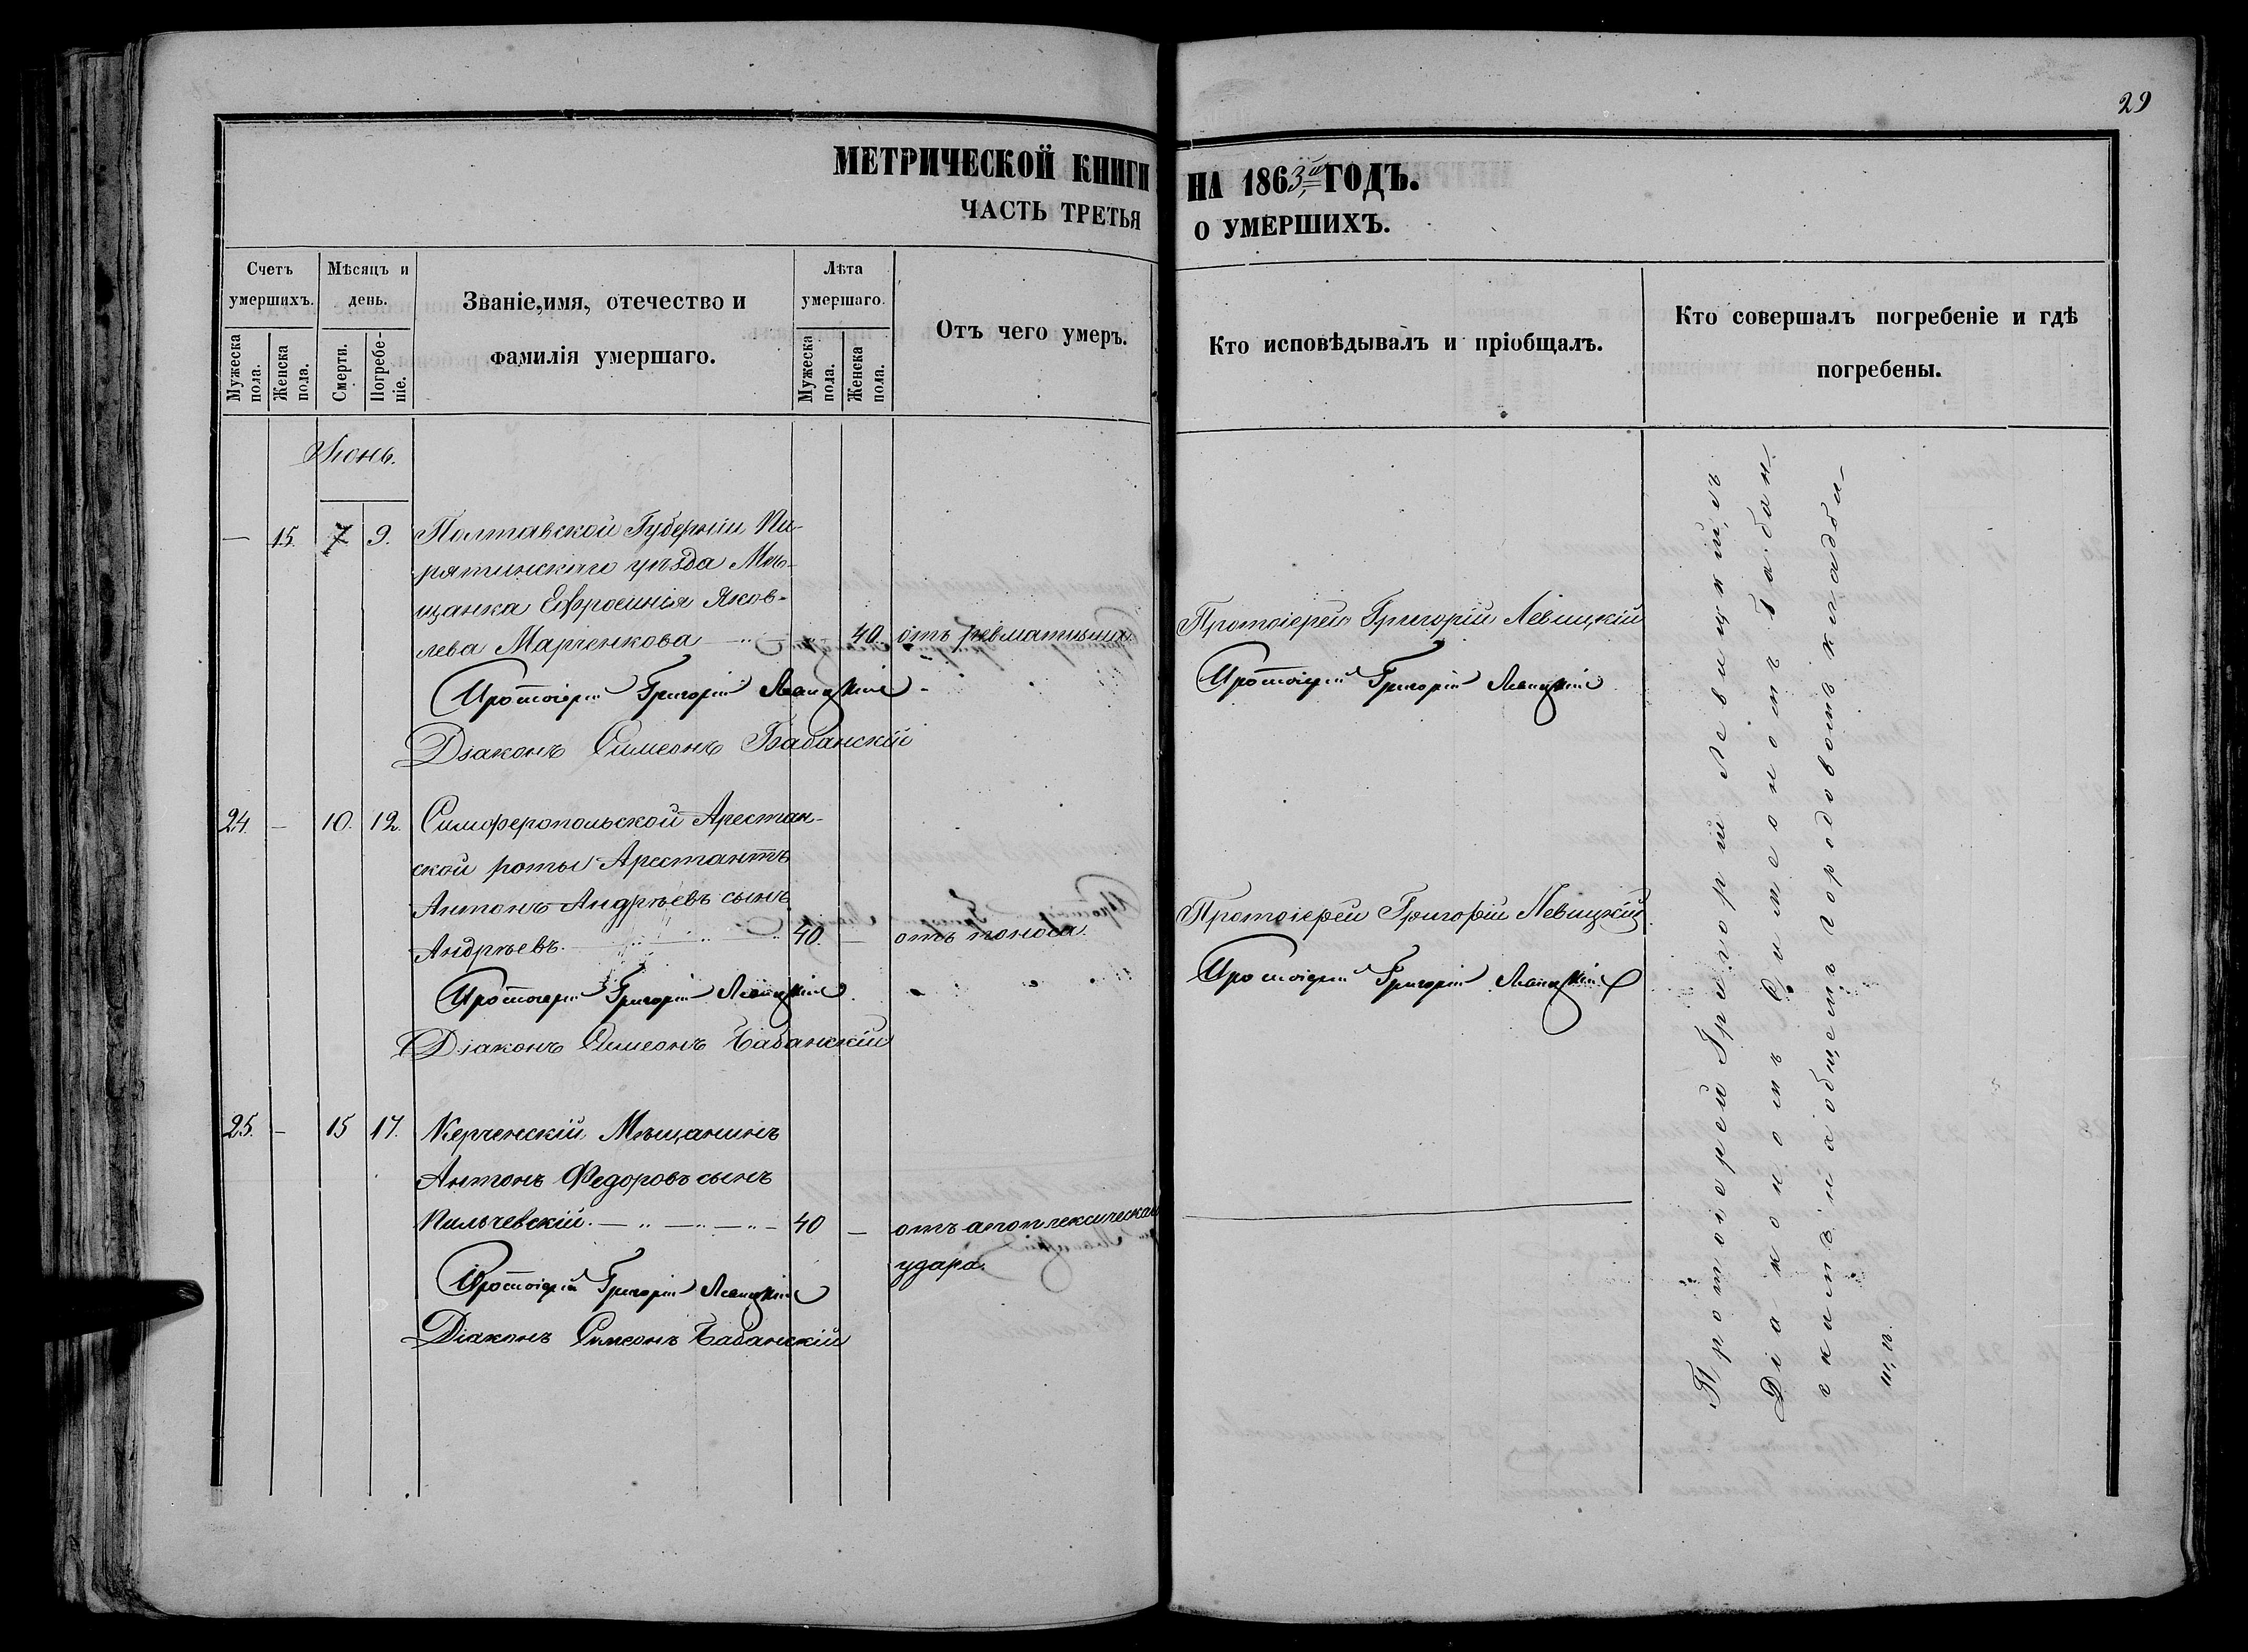 29
МЕТРИЧЕСКОЙ КНИГИ НА 1863й ГОДЪ.
ЧАСТЬ ТРЕТЬЯ О УМЕРШИХЪ.
Счетъ умершихъ.
Мужеска пола.
Женска пола.
Мѣсяцъ и день.
Смерти.
Погребе-
ніе.
Званіе, имя, отечество и
фамилія умершаго.
Лѣта умершаго.
Мужеска пола.
Женска пола.
Отъ чего умеръ.
Кто исповѣдывалъ и пріобщалъ.
Кто совершалъ погребеніе и гдѣ
погребены.
Іюнь.
— 15. 7 9. Полтавской Губерніи Пи-
рятинскаго уѣзда Мѣ-
щанка Ефросинія Яков-
лева Марченкова — 40. отъ ревматизма.
Протоіерей Григорій Левицкій
Протоіерей Григорій Левицкій
Протоіерей Григорій Левицкій
Діаконъ Симеонъ Бабанскій
24. — 10. 12. Симферопольской Арестан-
ской роты Арестантъ
Антонъ Андрѣевъ сынъ
Андрѣевъ. 40. — отъ поноса.
Протоіерей Григорій Левицкій
Протоіерей Григорій Левицкій
Протоіерей Григорій Левицкій
Діаконъ Симеонъ Бабанскій
25. — 15 17. Керченскій Мѣщанинъ
Антонъ Федоровъ сынъ
Пильчевскій. — 40 — отъ апоплексическаго
удара.
Протоіерей Григорій Левицкій
Діаконъ Симеонъ Бабанскій
Протоіерей Григорій Левицкій съ
Діакономъ Симеономъ Бабан-
скимъ на общемъ городовомъ кладби-
щѣ.